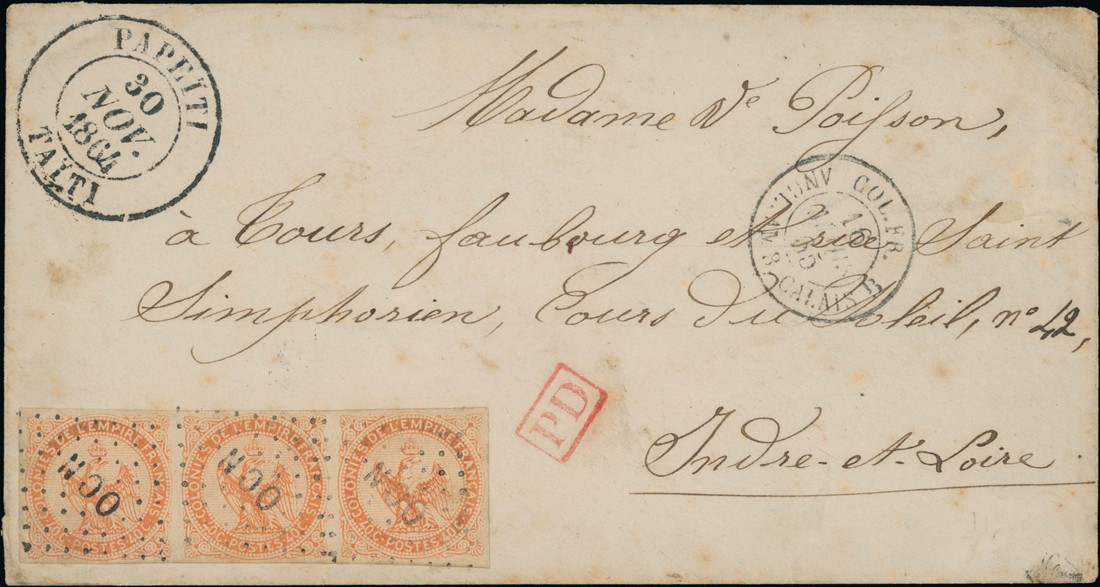 PAPEITI
30
NOV.
1864
TAITI
Madame Ve Poisson,
à Tours, faubourg et rue Saint
Simphorien, Cours du Soleil, n° 42,
Indre-et-Loire
COL. FR.
ANGL.
AMB. CALAIS
16
PD
COLONIES DE L'EMPIRE FRANÇAIS
40c. POSTES 40c.
OCN
COLONIES DE L'EMPIRE FRANÇAIS
40c. POSTES 40c.
OCN
COLONIES DE L'EMPIRE FRANÇAIS
40c. POSTES 40c.
OCN